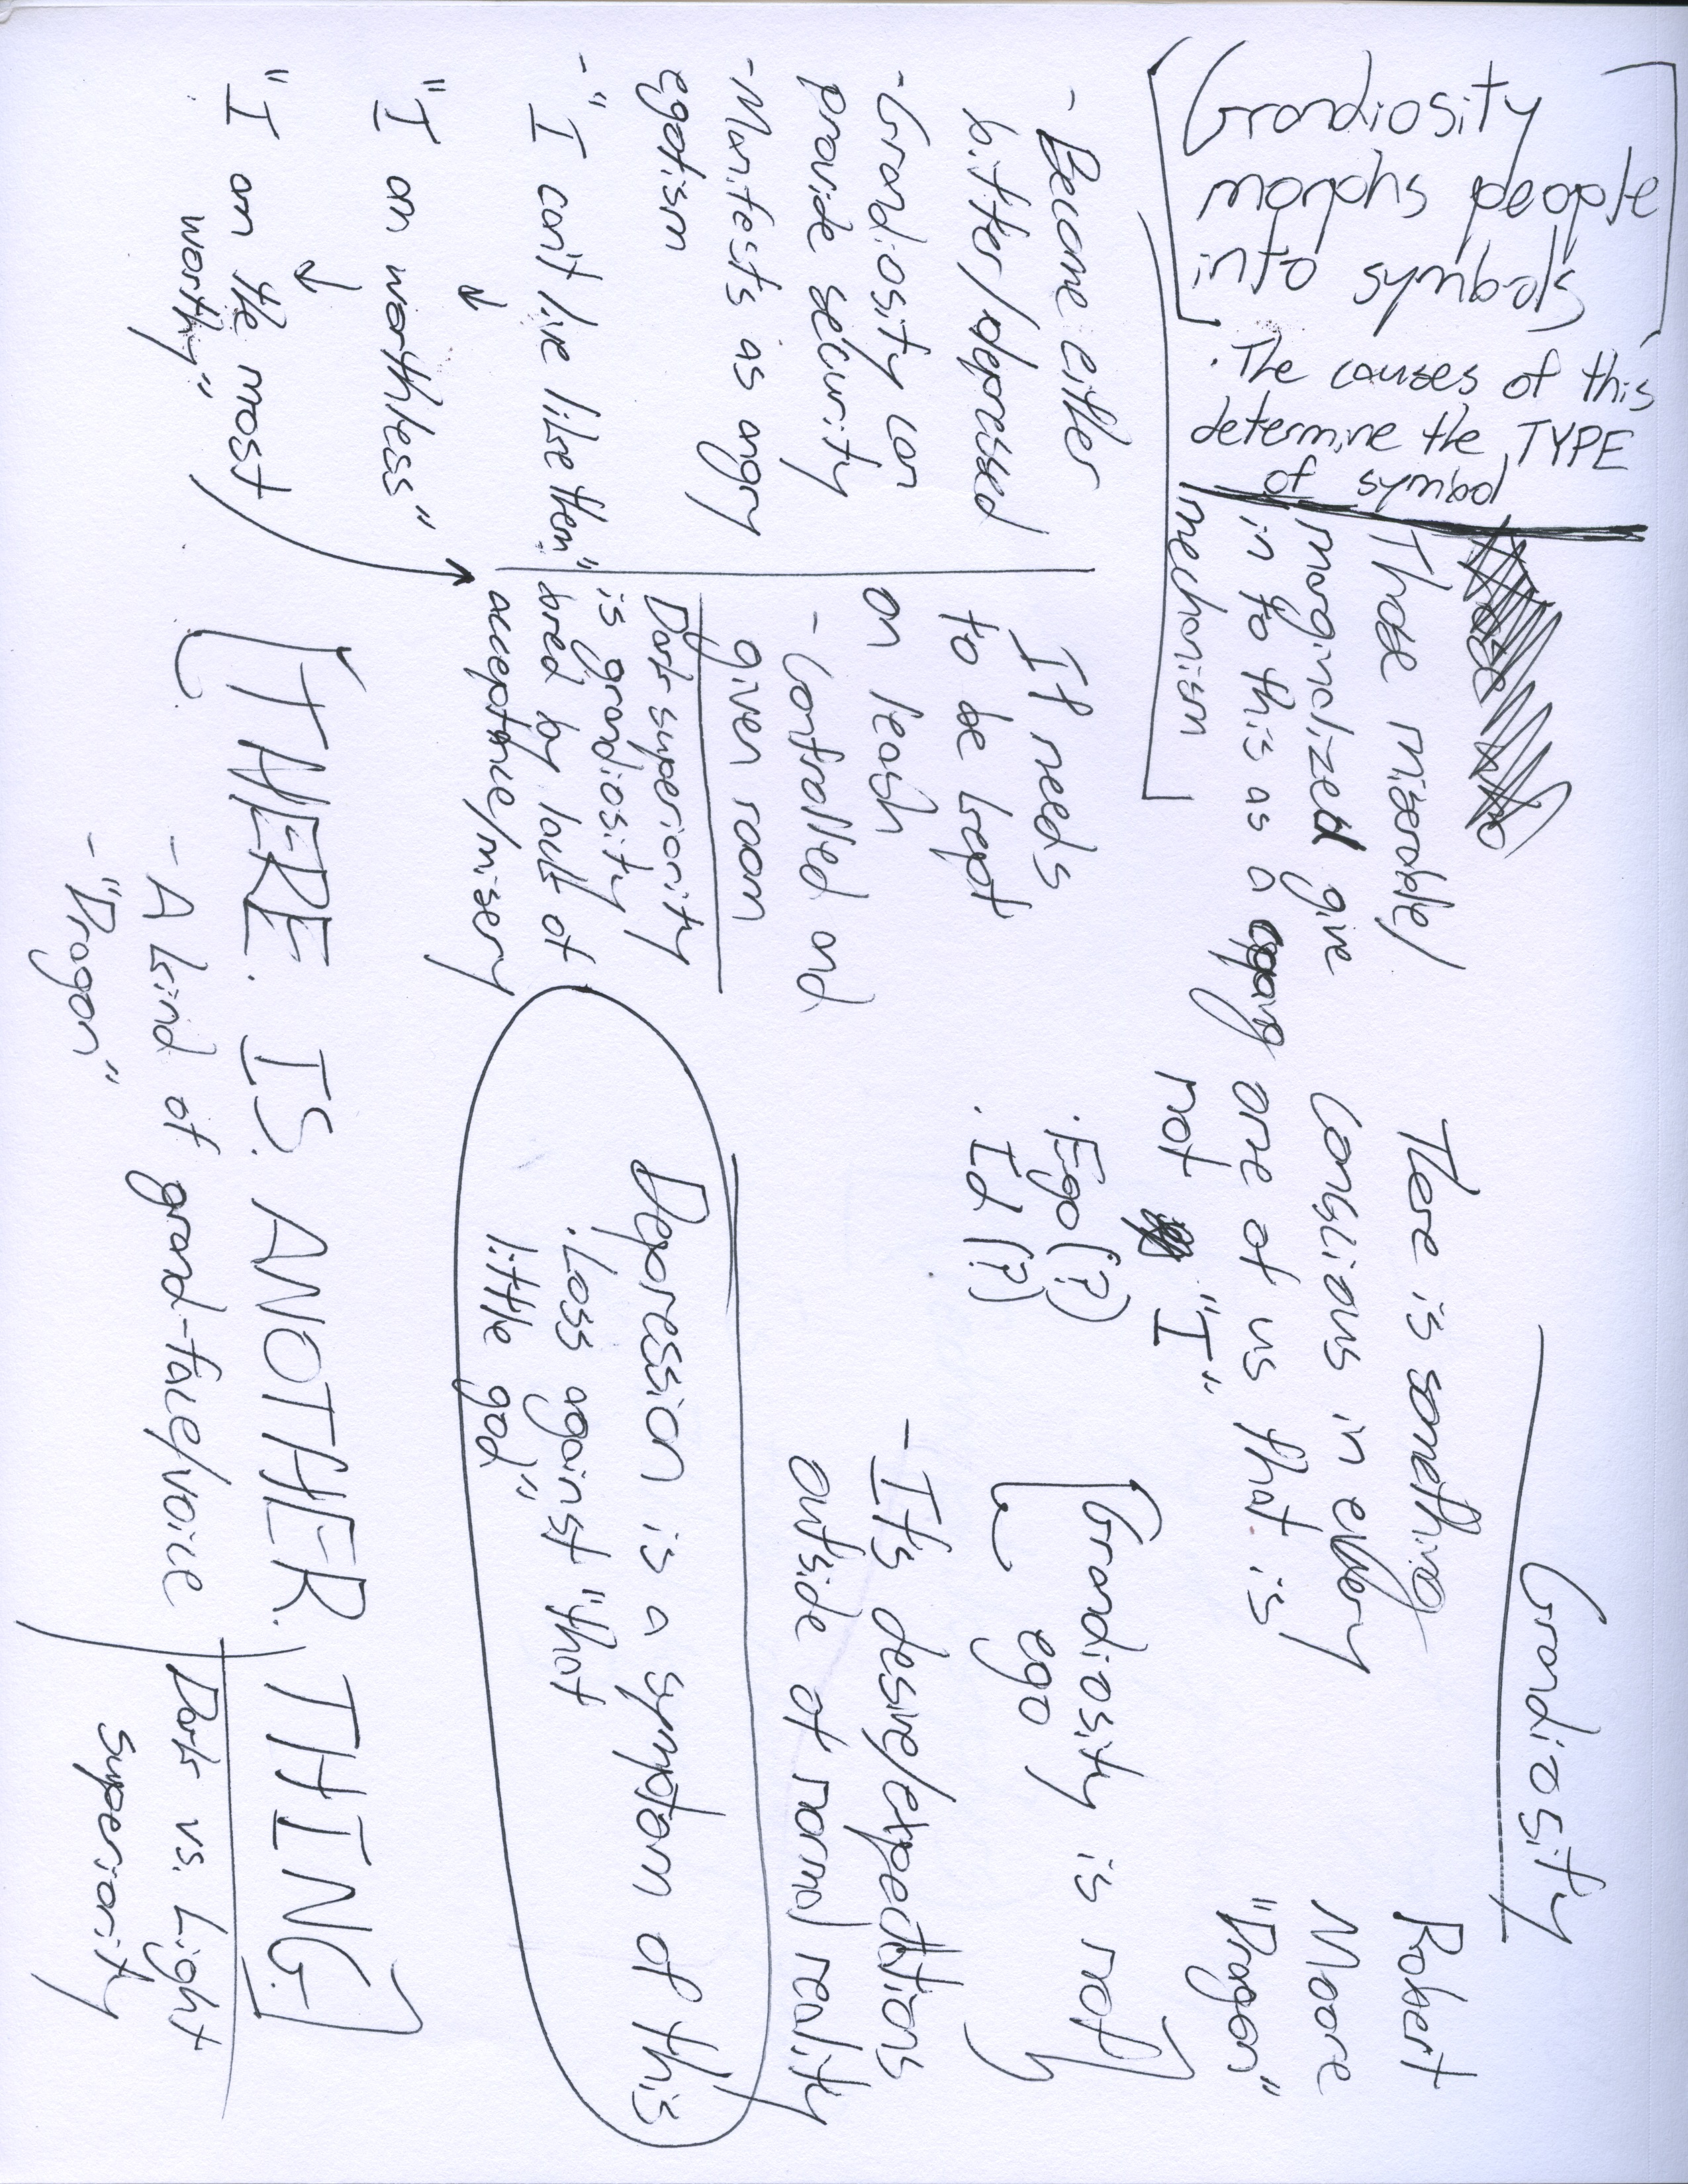 Grandiosity
Robert
Moore
"Dragon"
There is something
conscious in every
one of us that is
not "I"
· Ego (?)
· Id (?)
[Grandiosity is not
ego]
- It's desire/expectations
outside of normal reality
Depression is a symptom of this
· Loss against "that
little god"
[THERE. IS. ANOTHER. THING.]
- A kind of grand-face/voice
- "Dragon"
Dark vs. Light
superiority
[Grandiosity
morphs people
into symbols]
· The causes of this
determine the TYPE
of symbol
Those miserable/
marginalized give
in to this as a coping
mechanism
- Become either
bitter/depressed
- Grandiosity can
provide security
- Manifests as angry
egotism
- "I can't live like them"
↓
"I am worthless"
↓
"I am the most
worthy"
It needs
to be kept
on leash
- Controlled and
given room
Dark superiority
is grandiosity
bred by lack of
acceptance/misery